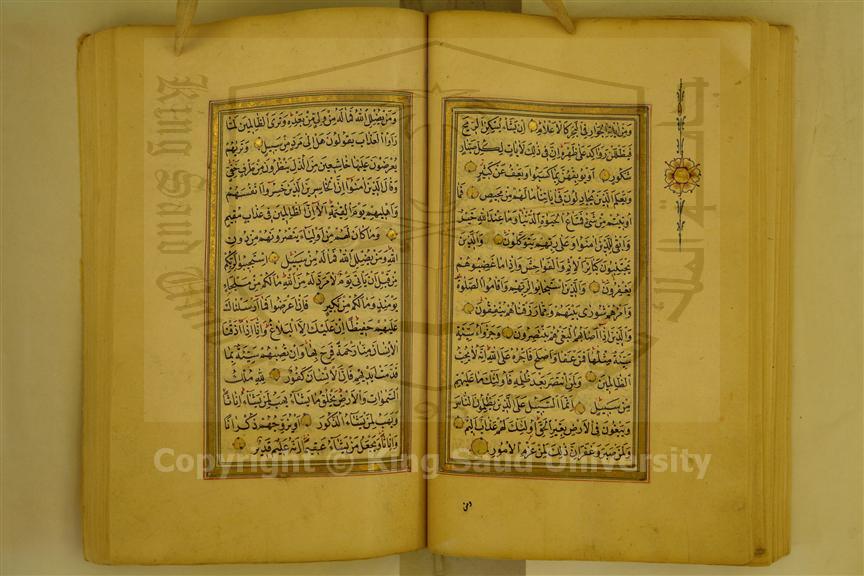 ومن اياته الجوار في البحر كالاعلام ان يشاء يسكن الريح
فيظللن رواكد على ظهره ان في ذلك لايات لكل صبار
شكور او يوبقهن بما كسبوا ويعف عن كثير
ويعلم الذين يجادلون في اياتنا ما لهم من محيص فما
اوتيتم من شئ فمتاع الحيوة الدنيا وما عند الله خير
وابقى للذين امنوا وعلى ربهم يتوكلون والذين
يجتنبون كبائر الاثم والفواحش واذا ما غضبوا هم
يغفرون والذين استجابوا لربهم واقاموا الصلوة
وامرهم شورى بينهم ومما رزقناهم ينفقون
والذين اذا اصابهم البغي هم ينتصرون وجزاؤا سيئة
سيئة مثلها فمن عفا واصلح فاجره على الله انه لا يحب
الظالمين ولمن انتصر بعد ظلمه فاولئك ما عليهم
من سبيل انما السبيل على الذين يظلمون الناس
ويبغون في الارض بغير الحق اولئك لهم عذاب اليم
ولمن صبر وغفر ان ذلك لمن عزم الامور
ومن
ومن يضلل الله فما له من ولي من بعده وترى الظالمين لما
راوا العذاب يقولون هل الى مرد من سبيل وتريهم
يعرضون عليها خاشعين من الذل ينظرون من طرف خفي
وقال الذين امنوا ان الخاسرين الذين خسروا انفسهم
واهليهم يوم القيمة الا ان الظالمين في عذاب مقيم
وما كان لهم من اولياء ينصرونهم من دون
الله ومن يضلل الله فما له من سبيل استجيبوا لربكم
من قبل ان ياتي يوم لا مرد له من الله ما لكم من ملجاء
يومئذ وما لكم من نكير فان اعرضوا فما ارسلناك
عليهم حفيظا ان عليك الا البلاغ وانا اذا اذقنا
الانسان منا رحمة فرح بها وان تصبهم سيئة بما
قدمت ايديهم فان الانسان كفور لله ملك
السموات والارض يخلق ما يشاء يهب لمن يشاء اناثا
ويهب لمن يشاء الذكور او يزوجهم ذكرانا
واناثا ويجعل من يشاء عقيما انه عليم قدير
King Saud University
جامعة الملك
Copyright © King Saud University